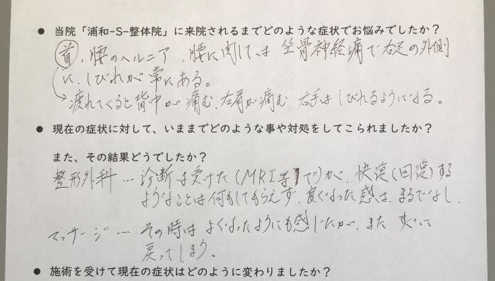 ● 当院「浦和-S-整体院」に来院されるまでどのような症状でお悩みでしたか？
首、腰のヘルニア、腰に関しては 坐骨神経痛で右足の外側
に、しびれが常にある。
→疲れてくると背中が痛む、右肩が痛む、右手はしびれるようになる。
● 現在の症状に対して、いままでどのような事や対処をしてこられましたか？
また、その結果どうでしたか？
整形外科 … 診断は受けた（MRI等まで）が、快復（回復）する
ようなことは何もしてもらえず、良くなった感は、まるでなし。
マッサージ … その時は よくなったようにも感じたが、また
戻ってしまう。
● 施術を受けて現在の症状はどのように変わりましたか？